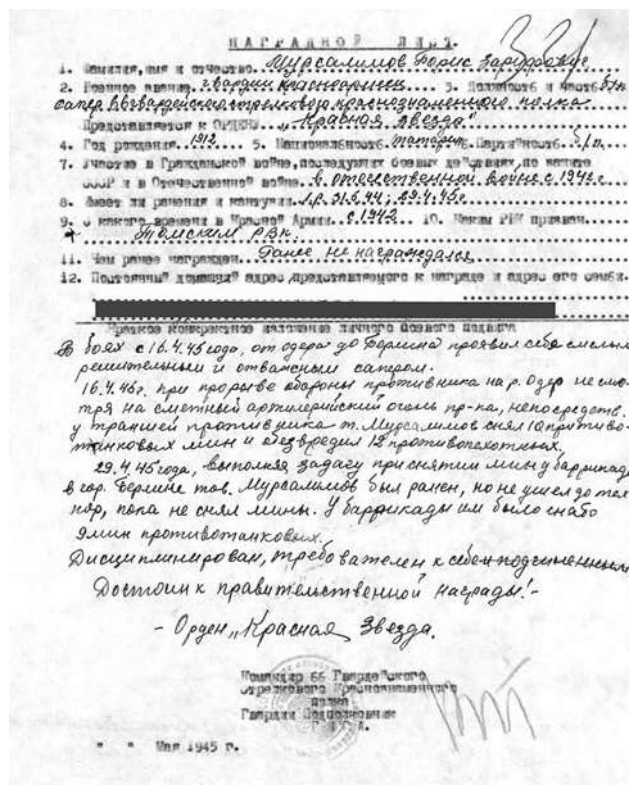 НАГРАДНОЙ ЛИСТ.
1. Фамилия, имя и отчество... Мурсалимов Борис
2. Военное звание. гвардии красноармеец 3. Должность и часть
сапер 66 гвардейского стрелкового краснознаменного полка
Представляется к ОРДЕНУ „Красная звезда"
4. Год рождения. 1912 5. Национальность. татарин. Партийность. б/п
7. Участие в Гражданской войне, последующих боевых действиях, по защите
СССР и в Отечественной войне. в отечественной войне с 1942 г.
8. Имеет ли ранения и контузии. л.р. 31.5.44; 29.4.45г.
9. С какого времени в Красной Армии. с 1942... 10. Каким РВК призван.
Томским РВК.
11. Чем ранее награжден. Ранее не награждался
12. Постоянный домашний адрес представляемого к награде и адрес его семьи.
Краткое конкретное изложение личного боевого подвига
В боях с 16.4.45 года, от одера до Берлина проявил себя смелым
решительным и отважным сапером.
16.4.45г. при прорыве обороны противника на р. Одер не смо-
тря на сметный артилерийский огонь пр-ка, непосредств.
у траншей противника т. Мурсалимов снял 10 противо-
танковых мин и обезвредил 12 противопехотных.
29.4.45 года, выполняя задачу при снятии мин у баррикады
в гор. Берлине тов. Мурсалимов был ранен, но не ушел до тех
пор, пока не снял мины. У баррикады им было снято
9 мин противотанковых.
Дисциплинирован, требователен к себе и подчиненным
Достоин к правительственной награды!-
- Орден „Красная Звезда.
Командир 66 Гвардейского
стрелкового Краснознаменного
полка
Гвардии Подполковник
" " Мая 1945 г.